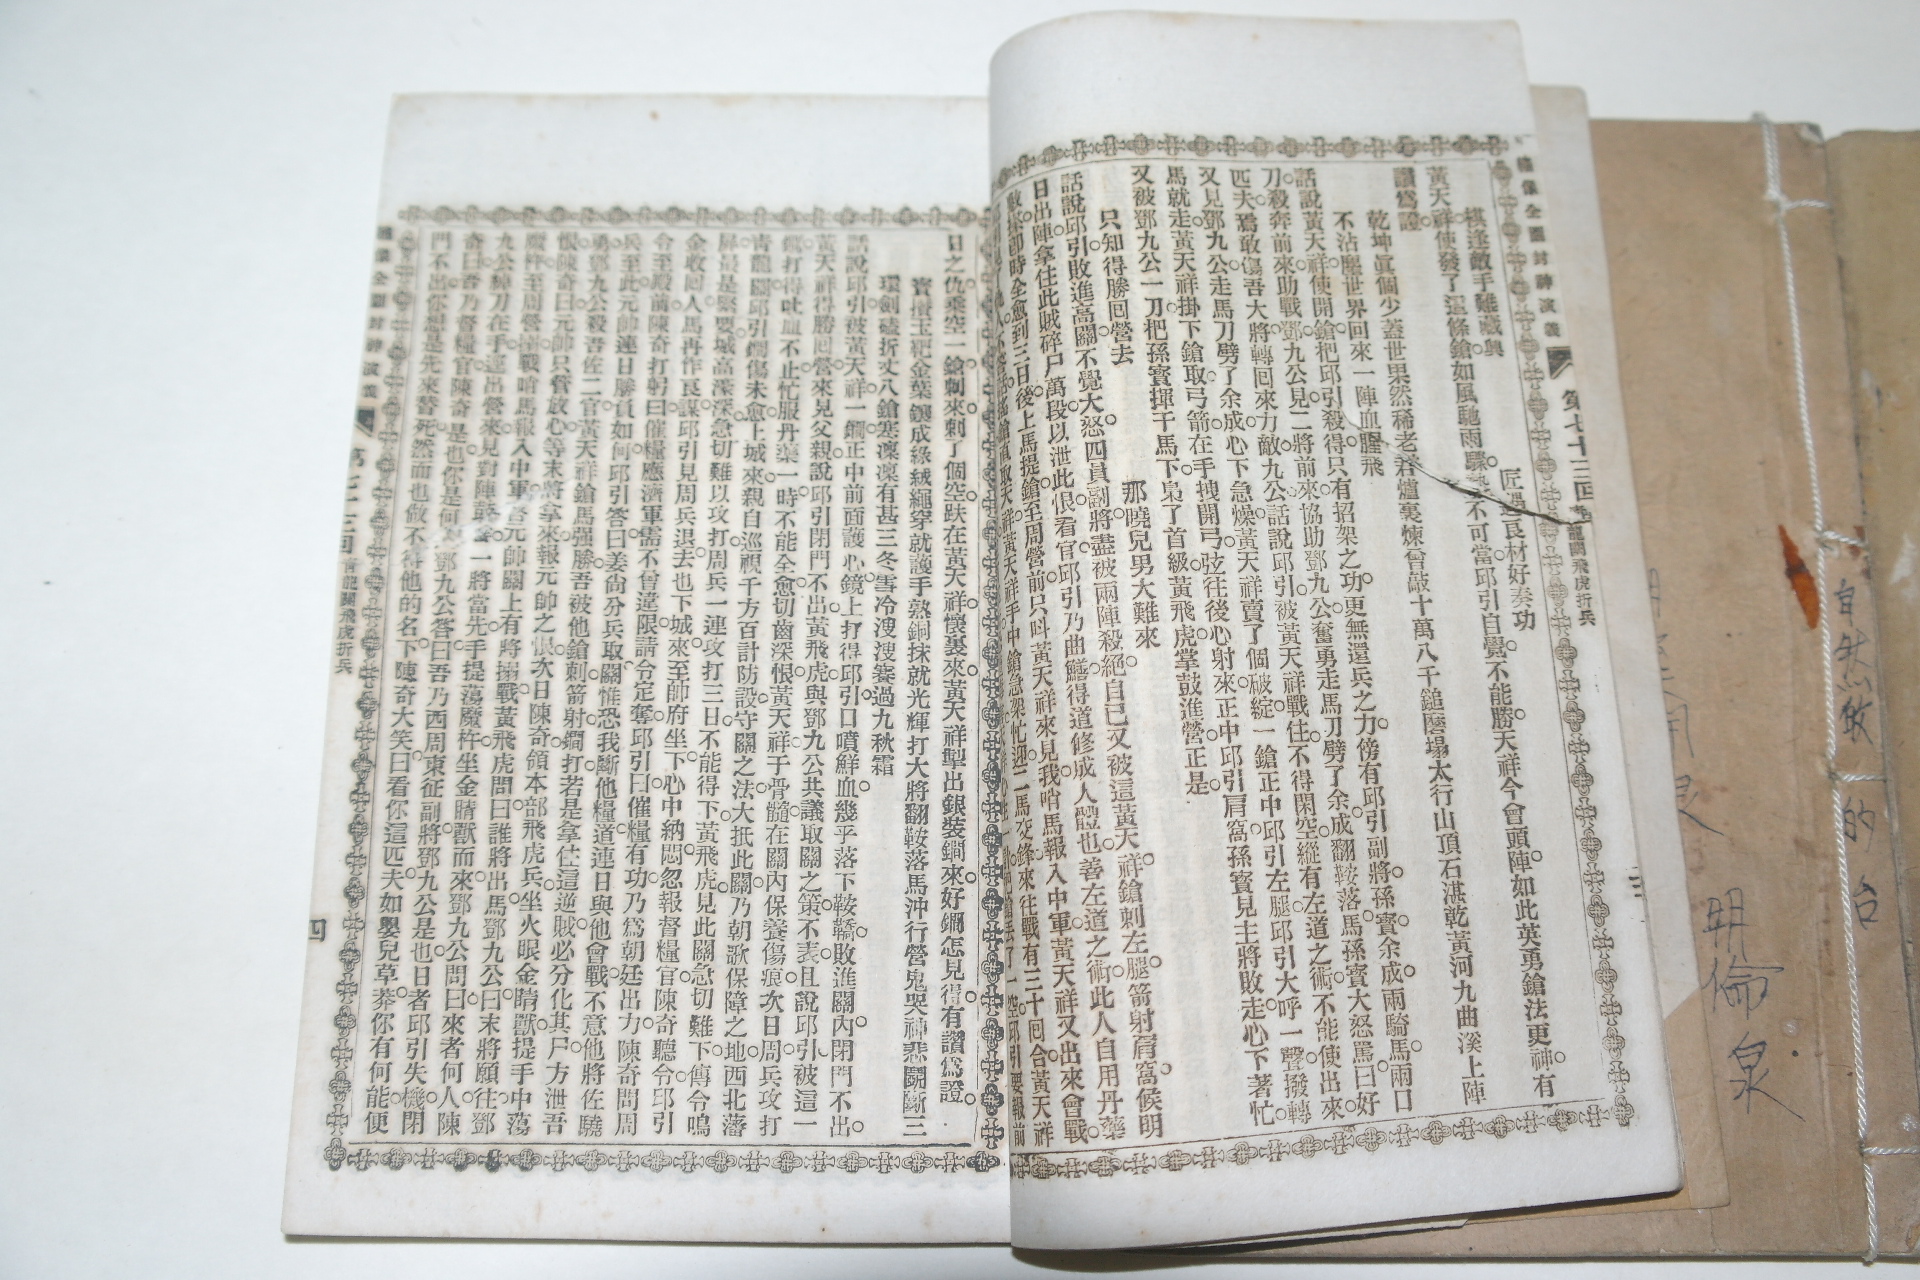 繪像全圖封神演義
第七十三回 青龍關飛虎折兵
棋逢敵手難藏興 匠遇良材好奏功
黃天祥使發了這條鎗如風馳雨驟勢不可當邱引自覺不能勝天祥今會頭陣如此英勇鎗法更神有
讚爲證
乾坤眞個少蓋世果然稀老君爐裏煉曾敲十萬八千鎚磨塌太行山頂石湛乾黃河九曲溪上陣
不沾塵世界回來一陣血腥飛
話說黃天祥使開鎗把邱引殺得只有招架之功更無還兵之力傍有邱引副將孫寶余成兩騎馬兩口
刀殺奔前來助戰鄧九公見二將前來協助鄧九公奮勇走馬刀劈了余成翻鞍落馬孫寶大怒罵曰好
匹夫焉敢傷吾大將轉回來力敵九公話說邱引被黃天祥戰住不得閑空縱有左道之術不能使出來
又見鄧九公走馬刀劈了余成心下急燥黃天祥賣了個破綻一鎗正中邱引左腿邱引大呼一聲撥轉
馬就走黃天祥掛下鎗取弓箭在手拽開弓弦往後心射來正中邱引肩窩孫寶見主將敗走心下著忙
又被鄧九公一刀把孫寶揮于馬下梟了首級黃飛虎掌鼓進營正是
只知得勝回營去 那曉兒男大難來
話說邱引敗進高關不覺大怒四員副將盡被兩陣殺絕自已又被這黃天祥鎗刺左腿箭射肩窩候明
日出陣拿住此賊碎尸萬段以泄此恨看官邱引乃曲鱔得道修成人體也善左道之術此人自用丹藥
敷搽卽時全愈到三日後上馬提鎗至周營前只呌黃天祥來見我哨馬報入中軍黃天祥又出來會戰
日之仇乘空一鎗刺來刺了個空跌在黃天祥懷裏來黃天祥掣出銀裝鐧來好鐧怎見得有讚爲證
寶攢玉靶金葉鑲成綠絨繩穿就護手熟銅抹就光輝打大將翻鞍落馬沖行營鬼哭神悲鬭斷三
環劍磕折丈八鎗寒凜凜有甚三冬雪冷溲溲賽過九秋霜
話說邱引被黃天祥一鐧正中前面護心鏡上打得邱引口噴鮮血幾乎落下鞍鞽敗進關內閉門不出
黃天祥得勝回營來見父親說邱引閉門不出黃飛虎與鄧九公共議取關之策不表且說邱引被這一
鐧打得吐血不止忙服丹藥一時不能全愈切齒深恨黃天祥于骨髓在關內保養傷痕次日周兵攻打
青龍關邱引鐧傷未愈上城來親自巡視千方百計防設守關之法大抵此關乃朝歌保障之地西北藩
屏最是緊要城高濠深急切難以攻打周兵一連攻打三日不能得下黃飛虎見此關急切難下傳令鳴
金收回人馬再作良謀邱引見周兵退去也下城來至帥府坐下心中納悶忽報督糧官陳奇聽令邱引
令至殿前陳奇打躬曰催糧應濟軍需不曾違限請令定奪邱引曰催糧有功乃爲朝廷出力陳奇問周
兵至此元帥連日勝負如何邱引答曰姜尙分兵取關惟恐我斷他糧道連日與他會戰不意他將佐驍
勇鄧九公殺吾佐二官黃天祥鎗馬強勝吾被他鎗刺箭射鐧打若是拿住這逆賊必分化其尸方泄吾
恨陳奇曰元帥只管放心等末將拿來報元帥之恨次日陳奇領本部飛虎兵坐火眼金睛獸提手中蕩
魔杵至周營搦戰哨馬報入中軍啓元帥關上有將搦戰黃飛虎問曰誰將出馬鄧九公曰末將願往鄧
九公綽刀在手逕出營來見對陣鼓響一將當先手提蕩魔杵坐金睛獸而來鄧九公問曰來者何人陳
奇曰吾乃督糧官陳奇是也你是何人鄧九公答曰吾乃西周東征副將鄧九公是也日者邱引失機閉
門不出你想是先來替死然而也做不得他的名下陳奇大笑曰看你這匹夫如嬰兒草莽你有何能便
繪像全圖封神演義
第七十三回 青龍關飛虎折兵
四
自然做的台
明倫泉